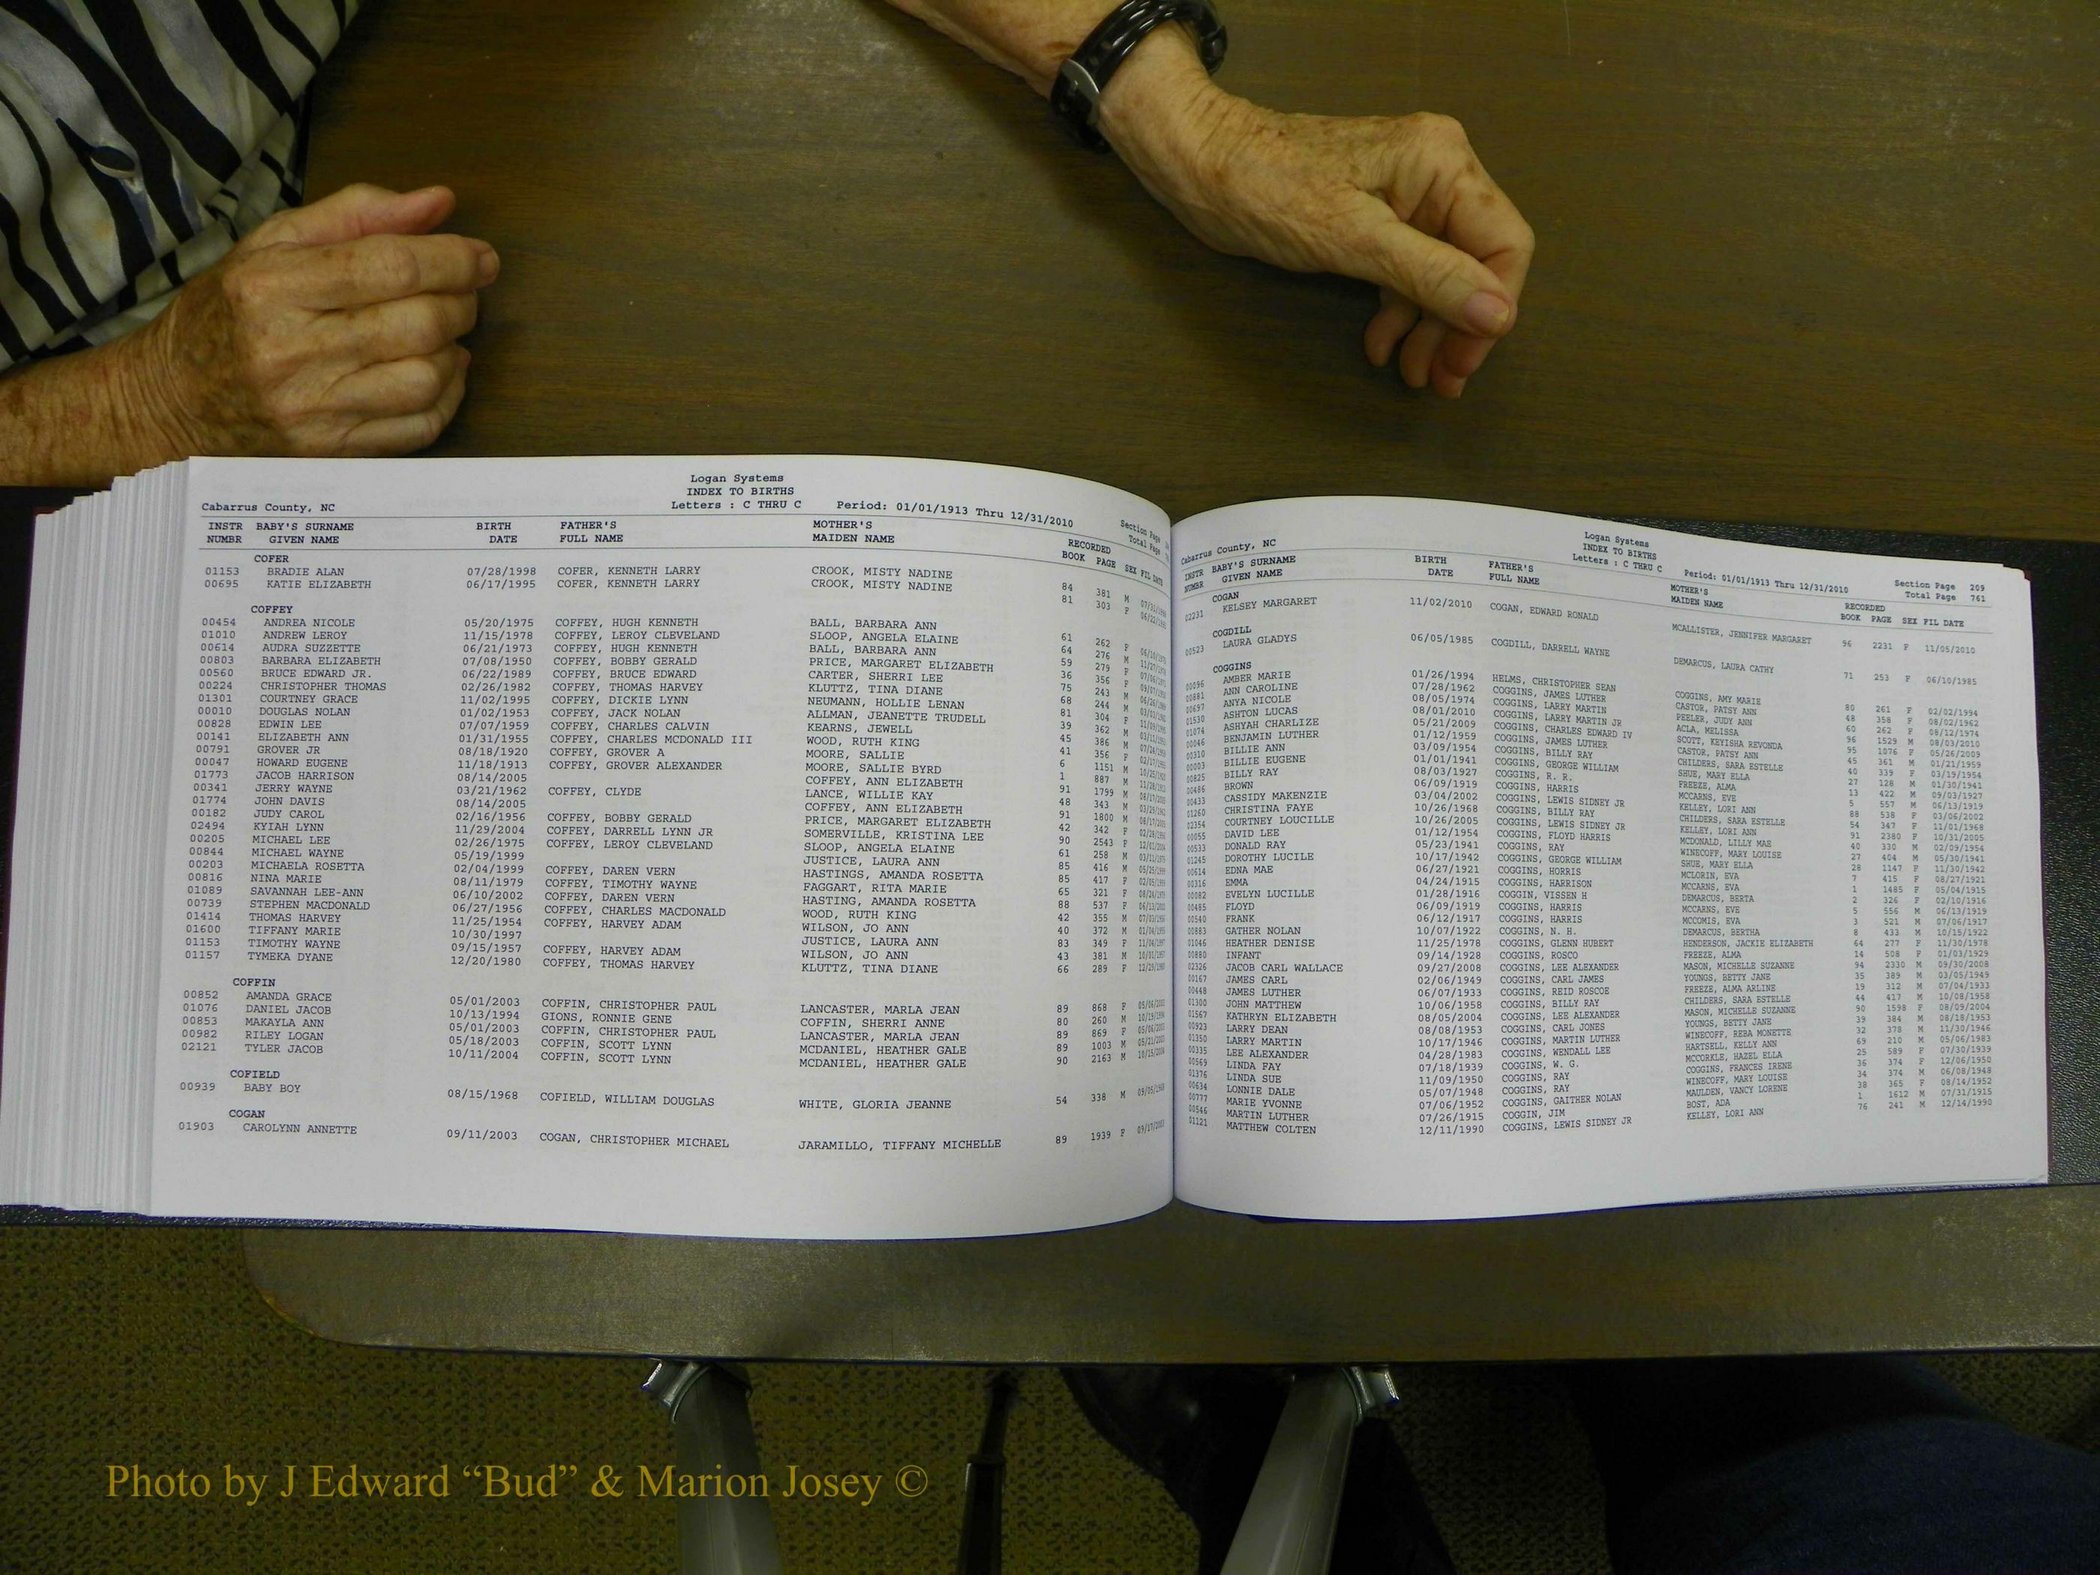 Logan Systems
INDEX TO BIRTHS
Cabarrus County, NC Letters : C THRU C Period: 01/01/1913 Thru 12/31/2010
Section Page
Total Page
INSTR BABY'S SURNAME BIRTH FATHER'S MOTHER'S RECORDED
NUMBR GIVEN NAME DATE FULL NAME MAIDEN NAME BOOK PAGE SEX FIL DATE
COFER
01153 BRADIE ALAN 07/28/1998 COFER, KENNETH LARRY CROOK, MISTY NADINE 84 381 M
00695 KATIE ELIZABETH 06/17/1995 COFER, KENNETH LARRY CROOK, MISTY NADINE 81 303 F
COFFEY
00454 ANDREA NICOLE 05/20/1975 COFFEY, HUGH KENNETH BALL, BARBARA ANN 61 262 F
01010 ANDREW LEROY 11/15/1978 COFFEY, LEROY CLEVELAND SLOOP, ANGELA ELAINE 64 276 M
00614 AUDRA SUZZETTE 06/21/1973 COFFEY, HUGH KENNETH BALL, BARBARA ANN 59 279 F
00803 BARBARA ELIZABETH 07/08/1950 COFFEY, BOBBY GERALD PRICE, MARGARET ELIZABETH 36 356 F
00560 BRUCE EDWARD JR. 06/22/1989 COFFEY, BRUCE EDWARD CARTER, SHERRI LEE 75 243 M
00224 CHRISTOPHER THOMAS 02/26/1982 COFFEY, THOMAS HARVEY KLUTTZ, TINA DIANE 68 244 M
01301 COURTNEY GRACE 11/02/1995 COFFEY, DICKIE LYNN NEUMANN, HOLLIE LENAN 81 304 F
00010 DOUGLAS NOLAN 01/02/1953 COFFEY, JACK NOLAN ALLMAN, JEANETTE TRUDELL 39 362 M
00828 EDWIN LEE 07/07/1959 COFFEY, CHARLES CALVIN KEARNS, JEWELL 45 386 M
00141 ELIZABETH ANN 01/31/1955 COFFEY, CHARLES MCDONALD III WOOD, RUTH KING 41 356 F
00791 GROVER JR 08/18/1920 COFFEY, GROVER A MOORE, SALLIE 6 1151 M
00047 HOWARD EUGENE 11/18/1913 COFFEY, GROVER ALEXANDER MOORE, SALLIE BYRD 1 887 M
01773 JACOB HARRISON 08/14/2005 COFFEY, ANN ELIZABETH 91 1799 M
00341 JERRY WAYNE 03/21/1962 COFFEY, CLYDE LANCE, WILLIE KAY 48 343 M
01774 JOHN DAVIS 08/14/2005 COFFEY, ANN ELIZABETH 91 1800 M
00182 JUDY CAROL 02/16/1956 COFFEY, BOBBY GERALD PRICE, MARGARET ELIZABETH 42 342 F
02494 KYIAH LYNN 11/29/2004 COFFEY, DARRELL LYNN JR SOMERVILLE, KRISTINA LEE 90 2543 F
00205 MICHAEL LEE 02/26/1975 COFFEY, LEROY CLEVELAND SLOOP, ANGELA ELAINE 61 258 M
00844 MICHAEL WAYNE 05/19/1999 JUSTICE, LAURA ANN 85 416 M
00203 MICHAELA ROSETTA 02/04/1999 COFFEY, DAREN VERN HASTINGS, AMANDA ROSETTA 85 417 F
00816 NINA MARIE 08/11/1979 COFFEY, TIMOTHY WAYNE FAGGART, RITA MARIE 65 321 F
01089 SAVANNAH LEE-ANN 06/10/2002 COFFEY, DAREN VERN HASTING, AMANDA ROSETTA 88 537 F
00739 STEPHEN MACDONALD 06/27/1956 COFFEY, CHARLES MACDONALD WOOD, RUTH KING 42 355 M
01414 THOMAS HARVEY 11/25/1954 COFFEY, HARVEY ADAM WILSON, JO ANN 40 372 M
01600 TIFFANY MARIE 10/30/1997 JUSTICE, LAURA ANN 83 349 F
01153 TIMOTHY WAYNE 09/15/1957 COFFEY, HARVEY ADAM WILSON, JO ANN 43 381 M
01157 TYMEKA DYANE 12/20/1980 COFFEY, THOMAS HARVEY KLUTTZ, TINA DIANE 66 289 F
COFFIN
00852 AMANDA GRACE 05/01/2003 COFFIN, CHRISTOPHER PAUL LANCASTER, MARLA JEAN 89 868 F
01076 DANIEL JACOB 10/13/1994 GIONS, RONNIE GENE COFFIN, SHERRI ANNE 80 260 M
00853 MAKAYLA ANN 05/01/2003 COFFIN, CHRISTOPHER PAUL LANCASTER, MARLA JEAN 89 869 F
00982 RILEY LOGAN 05/18/2003 COFFIN, SCOTT LYNN MCDANIEL, HEATHER GALE 89 1003 M
02121 TYLER JACOB 10/11/2004 COFFIN, SCOTT LYNN MCDANIEL, HEATHER GALE 90 2163 M
COFIELD
00939 BABY BOY 08/15/1968 COFIELD, WILLIAM DOUGLAS WHITE, GLORIA JEANNE 54 338 M
COGAN
01903 CAROLYNN ANNETTE 09/11/2003 COGAN, CHRISTOPHER MICHAEL JARAMILLO, TIFFANY MICHELLE 89 1939 F
Logan Systems
INDEX TO BIRTHS
Cabarrus County, NC Letters : C THRU C Period: 01/01/1913 Thru 12/31/2010
Section Page 209
Total Page 761
INSTR BABY'S SURNAME BIRTH FATHER'S MOTHER'S RECORDED
NUMBR GIVEN NAME DATE FULL NAME MAIDEN NAME BOOK PAGE SEX FIL DATE
COGAN
02231 KELSEY MARGARET 11/02/2010 COGAN, EDWARD RONALD MCALLISTER, JENNIFER MARGARET 96 2231 F 11/05/2010
COGDILL
00523 LAURA GLADYS 06/05/1985 COGDILL, DARRELL WAYNE DEMARCUS, LAURA CATHY 71 253 F 06/10/1985
COGGINS
00096 AMBER MARIE 01/26/1994 HELMS, CHRISTOPHER SEAN COGGINS, AMY MARIE 80 261 F 02/02/1994
00881 ANN CAROLINE 07/28/1962 COGGINS, JAMES LUTHER CASTOR, PATSY ANN 48 358 F 08/02/1962
00697 ANYA NICOLE 08/05/1974 COGGINS, LARRY MARTIN PEELER, JUDY ANN 60 262 F 08/12/1974
01530 ASHTON LUCAS 08/01/2010 COGGINS, LARRY MARTIN JR ACLA, MELISSA 96 1529 M 08/03/2010
01074 ASHYAH CHARLIZE 05/21/2009 COGGINS, CHARLES EDWARD IV SCOTT, KEYISHA REVONDA 95 1076 F 05/26/2009
00046 BENJAMIN LUTHER 01/12/1959 COGGINS, JAMES LUTHER CASTOR, PATSY ANN 45 361 M 01/21/1959
00310 BILLIE ANN 03/09/1954 COGGINS, BILLY RAY CHILDERS, SARA ESTELLE 40 339 F 03/19/1954
00003 BILLIE EUGENE 01/01/1941 COGGINS, GEORGE WILLIAM SHUE, MARY ELLA 27 128 M 01/30/1941
00825 BILLY RAY 08/03/1927 COGGINS, R. R. FREEZE, ALMA 13 422 M 09/03/1927
00486 BROWN 06/09/1919 COGGINS, HARRIS MCCARNS, EVE 5 557 M 06/13/1919
00433 CASSIDY MAKENZIE 03/04/2002 COGGINS, LEWIS SIDNEY JR KELLEY, LORI ANN 88 538 F 03/06/2002
01260 CHRISTINA FAYE 10/26/1968 COGGINS, BILLY RAY CHILDERS, SARA ESTELLE 54 347 F 11/01/1968
02354 COURTNEY LOUCILLE 10/26/2005 COGGINS, LEWIS SIDNEY JR KELLEY, LORI ANN 91 2380 F 10/31/2005
00055 DAVID LEE 01/12/1954 COGGINS, FLOYD HARRIS MCDONALD, LILLY MAE 40 330 M 02/09/1954
00533 DONALD RAY 05/23/1941 COGGINS, RAY WINECOFF, MARY LOUISE 27 404 M 05/30/1941
01245 DOROTHY LUCILE 10/17/1942 COGGINS, GEORGE WILLIAM SHUE, MARY ELLA 28 1147 F 11/30/1942
00614 EDNA MAE 06/27/1921 COGGINS, HORRIS MCLORIN, EVA 7 415 F 08/27/1921
00316 EMMA 04/24/1915 COGGINS, HARRISON MCCARNS, EVA 1 1485 F 05/04/1915
00082 EVELYN LUCILLE 01/28/1916 COGGIN, VISSEN H DEMARCUS, BERTA 2 326 F 02/10/1916
00485 FLOYD 06/09/1919 COGGINS, HARRIS MCCARNS, EVE 5 556 M 06/13/1919
00540 FRANK 06/12/1917 COGGINS, HARRIS MCCOMIS, EVA 3 521 M 07/06/1917
00883 GATHER NOLAN 10/07/1922 COGGINS, N. H. DEMARCUS, BERTHA 8 433 M 10/15/1922
01046 HEATHER DENISE 11/25/1978 COGGINS, GLENN HUBERT HENDERSON, JACKIE ELIZABETH 64 277 F 11/30/1978
00880 INFANT 09/14/1928 COGGINS, ROSCO FREEZE, ALMA 14 508 F 01/03/1929
02326 JACOB CARL WALLACE 09/27/2008 COGGINS, LEE ALEXANDER MASON, MICHELLE SUZANNE 94 2330 M 09/30/2008
00167 JAMES CARL 02/06/1949 COGGINS, CARL JAMES YOUNGS, BETTY JANE 35 389 M 03/05/1949
00448 JAMES LUTHER 06/07/1933 COGGINS, REID ROSCOE FREEZE, ALMA ARLINE 19 312 M 07/04/1933
01300 JOHN MATTHEW 10/06/1958 COGGINS, BILLY RAY CHILDERS, SARA ESTELLE 44 417 M 10/08/1958
01567 KATHRYN ELIZABETH 08/05/2004 COGGINS, LEE ALEXANDER MASON, MICHELLE SUZANNE 90 1598 F 08/09/2004
00923 LARRY DEAN 08/08/1953 COGGINS, CARL JONES YOUNGS, BETTY JANE 39 384 M 08/18/1953
01350 LARRY MARTIN 10/17/1946 COGGINS, MARTIN LUTHER WINECOFF, REBA MONETTE 32 378 M 11/30/1946
00335 LEE ALEXANDER 04/28/1983 COGGINS, WENDALL LEE HARTSELL, KELLY ANN 69 210 M 05/06/1983
00569 LINDA FAY 07/18/1939 COGGINS, W. G. MCCORKLE, HAZEL ELLA 25 589 F 07/30/1939
01376 LINDA SUE 11/09/1950 COGGINS, RAY COGGINS, FRANCES IRENE 36 374 F 12/06/1950
00634 LONNIE DALE 05/07/1948 COGGINS, RAY WINECOFF, MARY LOUISE 34 374 M 06/08/1948
00777 MARIE YVONNE 07/06/1952 COGGINS, GAITHER NOLAN MAULDEN, VANCY LORENE 38 365 F 08/14/1952
00546 MARTIN LUTHER 07/26/1915 COGGIN, JIM BOST, ADA 1 1612 M 07/31/1915
01121 MATTHEW COLTEN 12/11/1990 COGGINS, LEWIS SIDNEY JR KELLEY, LORI ANN 76 241 M 12/14/1990
Photo by J Edward “Bud” & Marion Josey ©